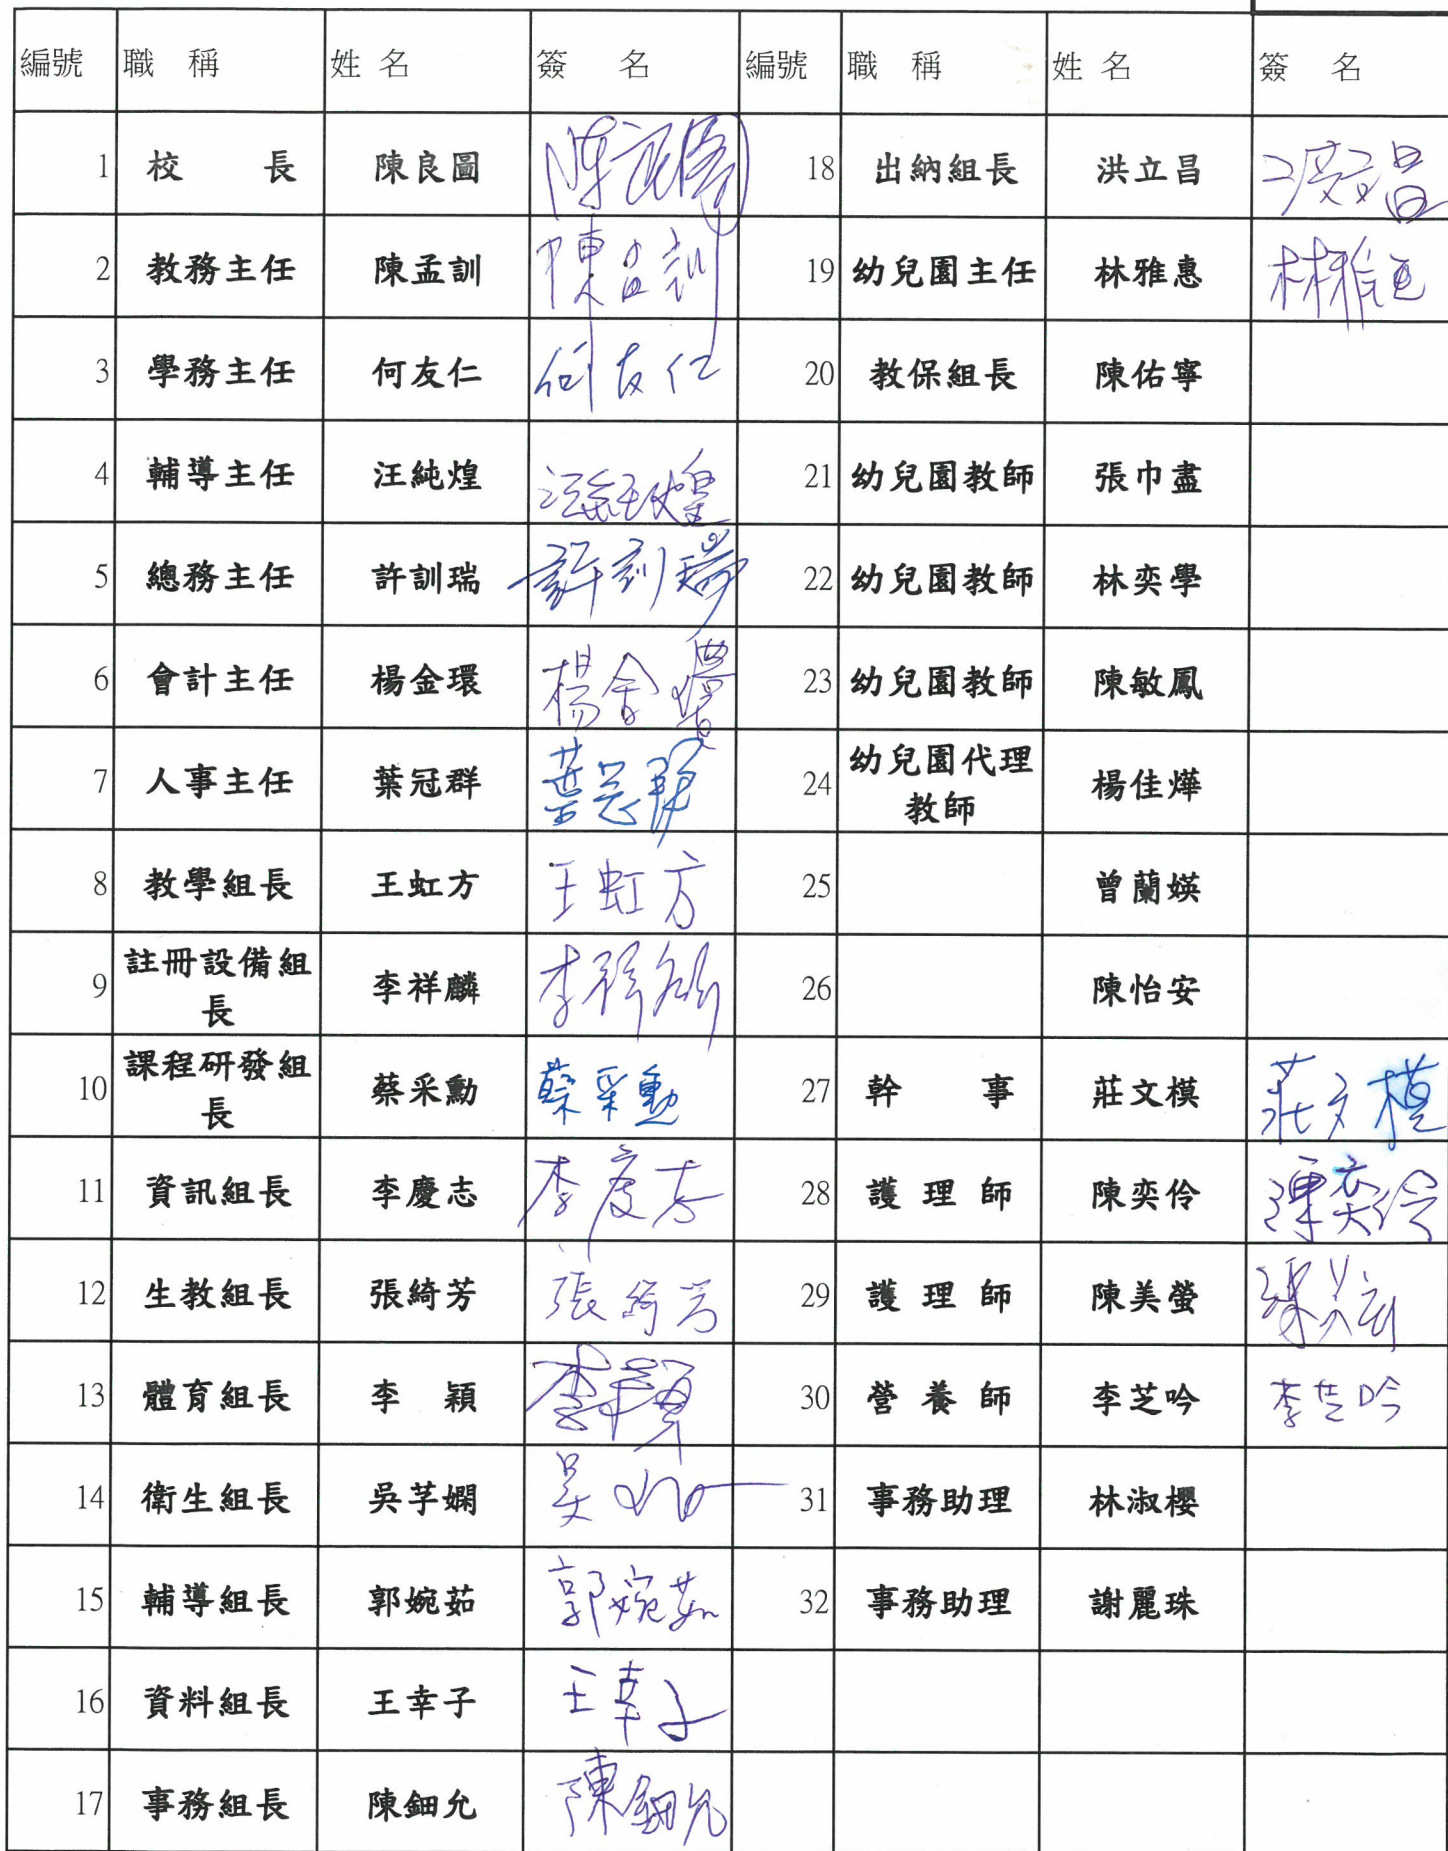 編號 職稱 姓名 簽名 編號 職稱 姓名 簽名
1 校長 陳良圖 陳良圖 18 出納組長 洪立昌 洪立昌
2 教務主任 陳孟訓 陳孟訓 19 幼兒園主任 林雅惠 林雅惠
3 學務主任 何友仁 何友仁 20 教保組長 陳佑寧
4 輔導主任 汪純煌 汪純煌 21 幼兒園教師 張巾盡
5 總務主任 許訓瑞 許訓瑞 22 幼兒園教師 林奕學
6 會計主任 楊金環 楊金環 23 幼兒園教師 陳敏鳳
7 人事主任 葉冠群 葉冠群 24 幼兒園代理教師 楊佳燁
8 教學組長 王虹方 王虹方 25 曾蘭媖
9 註冊設備組長 李祥麟 李祥麟 26 陳怡安
10 課程研發組長 蔡采勳 蔡采勳 27 幹事 莊文模 莊文模
11 資訊組長 李慶志 李慶志 28 護理師 陳奕伶 陳奕伶
12 生教組長 張綺芳 張綺芳 29 護理師 陳美螢
13 體育組長 李穎 李穎 30 營養師 李芝吟 李芝吟
14 衛生組長 吳芓嫻 31 事務助理 林淑櫻
15 輔導組長 郭婉茹 郭婉茹 32 事務助理 謝麗珠
16 資料組長 王幸子 王幸子
17 事務組長 陳鈿允 陳鈿允